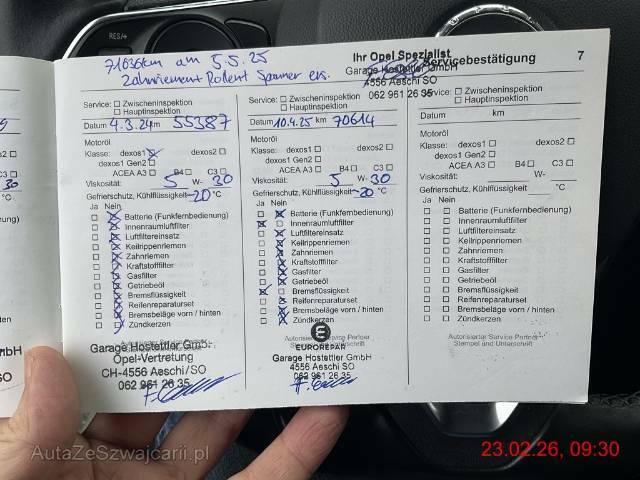 RES/+
71036km am 5.5.25
Zahnriement Rollent Spanner ers.
Ihr Opel Spezialist
Garage Hostettler GmbH
4556 Aeschi SO
062 961 26 35
Servicebestätigung 7
Service: Zwischeninspektion
Hauptinspektion
Datum 4.3.24 km 55387
Motoröl
Klasse: dexos1 dexos2
dexos1 Gen2
ACEA A3 B4 C3
Viskosität: 5 W- 30
Gefrierschutz, Kühlflüssigkeit -20 °C
Ja Nein
Batterie (Funkfernbedienung)
Innenraumluftfilter
Luftfiltereinsatz
Keilrippenriemen
Zahnriemen
Kraftstofffilter
Gasfilter
Getriebeöl
Bremsflüssigkeit
Reifenreparaturset
Bremsbeläge vorn / hinten
Zündkerzen
Garage Hostettler GmbH
Opel-Vertretung
CH-4556 Aeschi/SO
062 961 26 35
Service: Zwischeninspektion
Hauptinspektion
Datum 10.4.25 km 70614
Motoröl
Klasse: dexos1 dexos2
dexos1 Gen2
ACEA A3 B4 C3
Viskosität: 5 W- 30
Gefrierschutz, Kühlflüssigkeit -20 °C
Ja Nein
Batterie (Funkfernbedienung)
Innenraumluftfilter
Luftfiltereinsatz
Keilrippenriemen
Zahnriemen
Kraftstofffilter
Gasfilter
Getriebeöl
Bremsflüssigkeit
Reifenreparaturset
Bremsbeläge vorn / hinten
Zündkerzen
Autorisierter Service Partner
EUROREPAR
Garage Hostettler GmbH
4556 Aeschi SO
062 961 26 35
Service: Zwischeninspektion
Hauptinspektion
Datum km
Motoröl
Klasse: dexos1 dexos2
dexos1 Gen2
ACEA A3 B4 C3
Viskosität: W-
Gefrierschutz, Kühlflüssigkeit °C
Ja Nein
Batterie (Funkfernbedienung)
Innenraumluftfilter
Luftfiltereinsatz
Keilrippenriemen
Zahnriemen
Kraftstofffilter
Gasfilter
Getriebeöl
Bremsflüssigkeit
Reifenreparaturset
Bremsbeläge vorn / hinten
Zündkerzen
Autorisierter Service Partner
Stempel und Unterschrift
23.02.26, 09:30
AutaZeSzwajcarii.pl